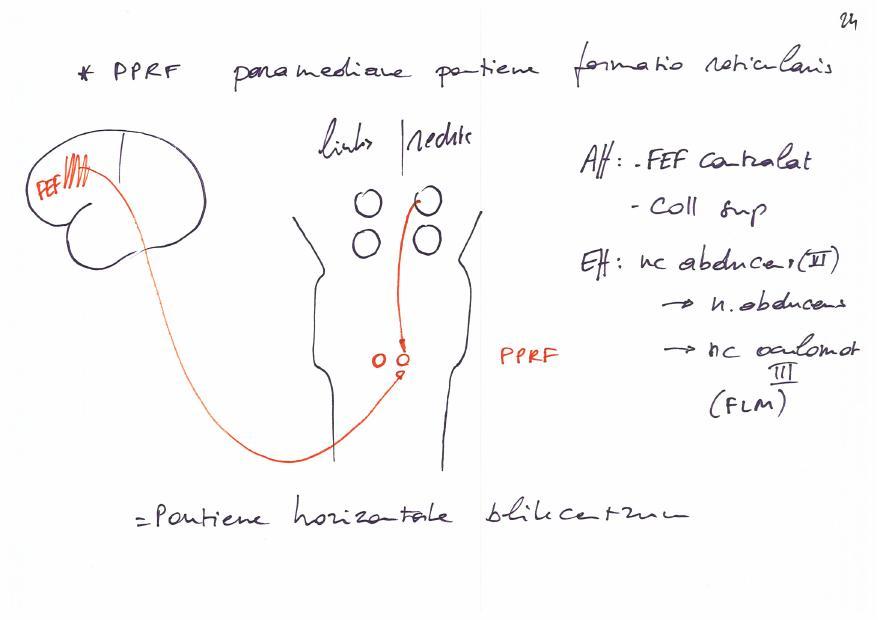 24
* PPRF paramediane pontiene formatio reticularis
links | rechts
FEF
Aff: - FEF contralat
- Coll sup
Eff: nc abducens (VI)
→ n. abducens
→ nc oculomot
III
(FLM)
PPRF
= Pontiene horizontale blikcentrum